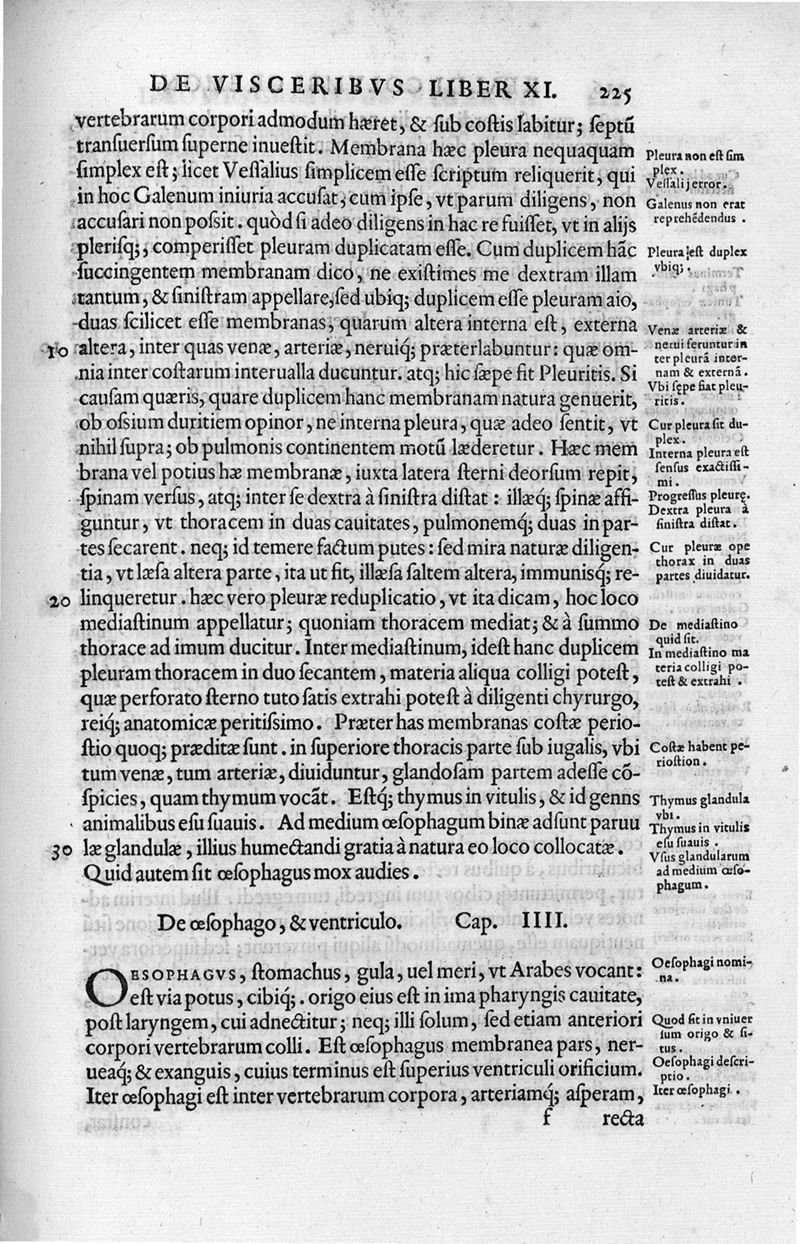 DE VISCERIBVS LIBER XI. 225
vertebrarum corpori admodum hæret, & ſub coſtis labitur; ſeptū
tranſuerſum ſuperne inueſtit. Membrana hæc pleura nequaquam
ſimplex eſt; licet Veſſalius ſimplicem eſſe ſcriptum reliquerit, qui
in hoc Galenum iniuria accuſat, cum ipſe, vt parum diligens, non
accuſari non poſsit. quòd ſi adeo diligens in hac re fuiſſet, vt in alijs
pleriſq;, comperiſſet pleuram duplicatam eſſe. Cum duplicem hāc
ſuccingentem membranam dico, ne exiſtimes me dextram illam
tantum, & ſiniſtram appellare, ſed ubiq; duplicem eſſe pleuram aio,
duas ſcilicet eſſe membranas, quarum altera interna eſt, externa
10 altera, inter quas venæ, arteriæ, neruiq́; præterlabuntur: quæ om-
nia inter coſtarum interualla ducuntur. atq; hic ſæpe fit Pleuritis. Si
cauſam quæris, quare duplicem hanc membranam natura genuerit,
ob oſsium duritiem opinor, ne interna pleura, quæ adeo ſentit, vt
nihil ſupra; ob pulmonis continentem motū læderetur. Hæc mem
brana vel potius hæ membranæ, iuxta latera ſterni deorſum repit,
ſpinam verſus, atq; inter ſe dextra à ſiniſtra diſtat: illæq́; ſpinæ affi-
guntur, vt thoracem in duas cauitates, pulmonemq́; duas in par-
tes ſecarent. neq; id temere factum putes: ſed mira naturæ diligen-
tia, vt læſa altera parte, ita ut fit, illæſa ſaltem altera, immunisq́; re-
20 linqueretur. hæc vero pleuræ reduplicatio, vt ita dicam, hoc loco
mediaſtinum appellatur; quoniam thoracem mediat; & à ſummo
thorace ad imum ducitur. Inter mediaſtinum, ideſt hanc duplicem
pleuram thoracem in duo ſecantem, materia aliqua colligi poteſt,
quæ perforato ſterno tuto ſatis extrahi poteſt à diligenti chyrurgo,
reiq́; anatomicæ peritiſsimo. Præter has membranas coſtæ perio-
ſtio quoq; præditæ ſunt. in ſuperiore thoracis parte ſub iugalis, vbi
tum venæ, tum arteriæ, diuiduntur, glandoſam partem adeſſe cō-
ſpicies, quam thymum vocāt. Eſtq́; thymus in vitulis, & id genns
animalibus eſu ſuauis. Ad medium œſophagum binæ adſunt paruu
30 læ glandulæ, illius humectandi gratia à natura eo loco collocatæ.
Quid autem ſit œſophagus mox audies.
De œſophago, & ventriculo. Cap. IIII.
OESOPHAGVS, ſtomachus, gula, uel meri, vt Arabes vocant:
eſt via potus, cibiq́;. origo eius eſt in ima pharyngis cauitate,
poſt laryngem, cui adnectitur; neq; illi ſolum, ſed etiam anteriori
corpori vertebrarum colli. Eſt œſophagus membranea pars, ner-
ueaq́; & exanguis, cuius terminus eſt ſuperius ventriculi orificium.
Iter œſophagi eſt inter vertebrarum corpora, arteriamq́; aſperam,
f recta
Pleura non eſt ſim
plex.
Veſſalij error.
Galenus non erat
reprehēdendus.
Pleura eſt duplex
vbiq;.
Venæ arteriæ &
nerui feruntur in
ter pleurā inter-
nam & externā.
Vbi ſępe fiat pleu-
ritis.
Cur pleura ſit du-
plex.
Interna pleura eſt
ſenſus exactiſſi-
mi.
Progreſſus pleurę.
Dextra pleura à
ſiniſtra diſtat.
Cur pleuræ ope
thorax in duas
partes diuidatur.
De mediaſtino
quid ſit.
In mediaſtino ma
teria colligi po-
teſt & extrahi.
Coſtæ habent pe-
rioſtion.
Thymus glandula
vbi.
Thymus in vitulis
eſu ſuauis.
Vſus glandularum
ad medium œſo-
phagum.
Oeſophagi nomi-
na.
Quod ſit in vniuer
ſum origo & ſi-
tus.
Oeſophagi deſcri-
ptio.
Iter œſophagi.